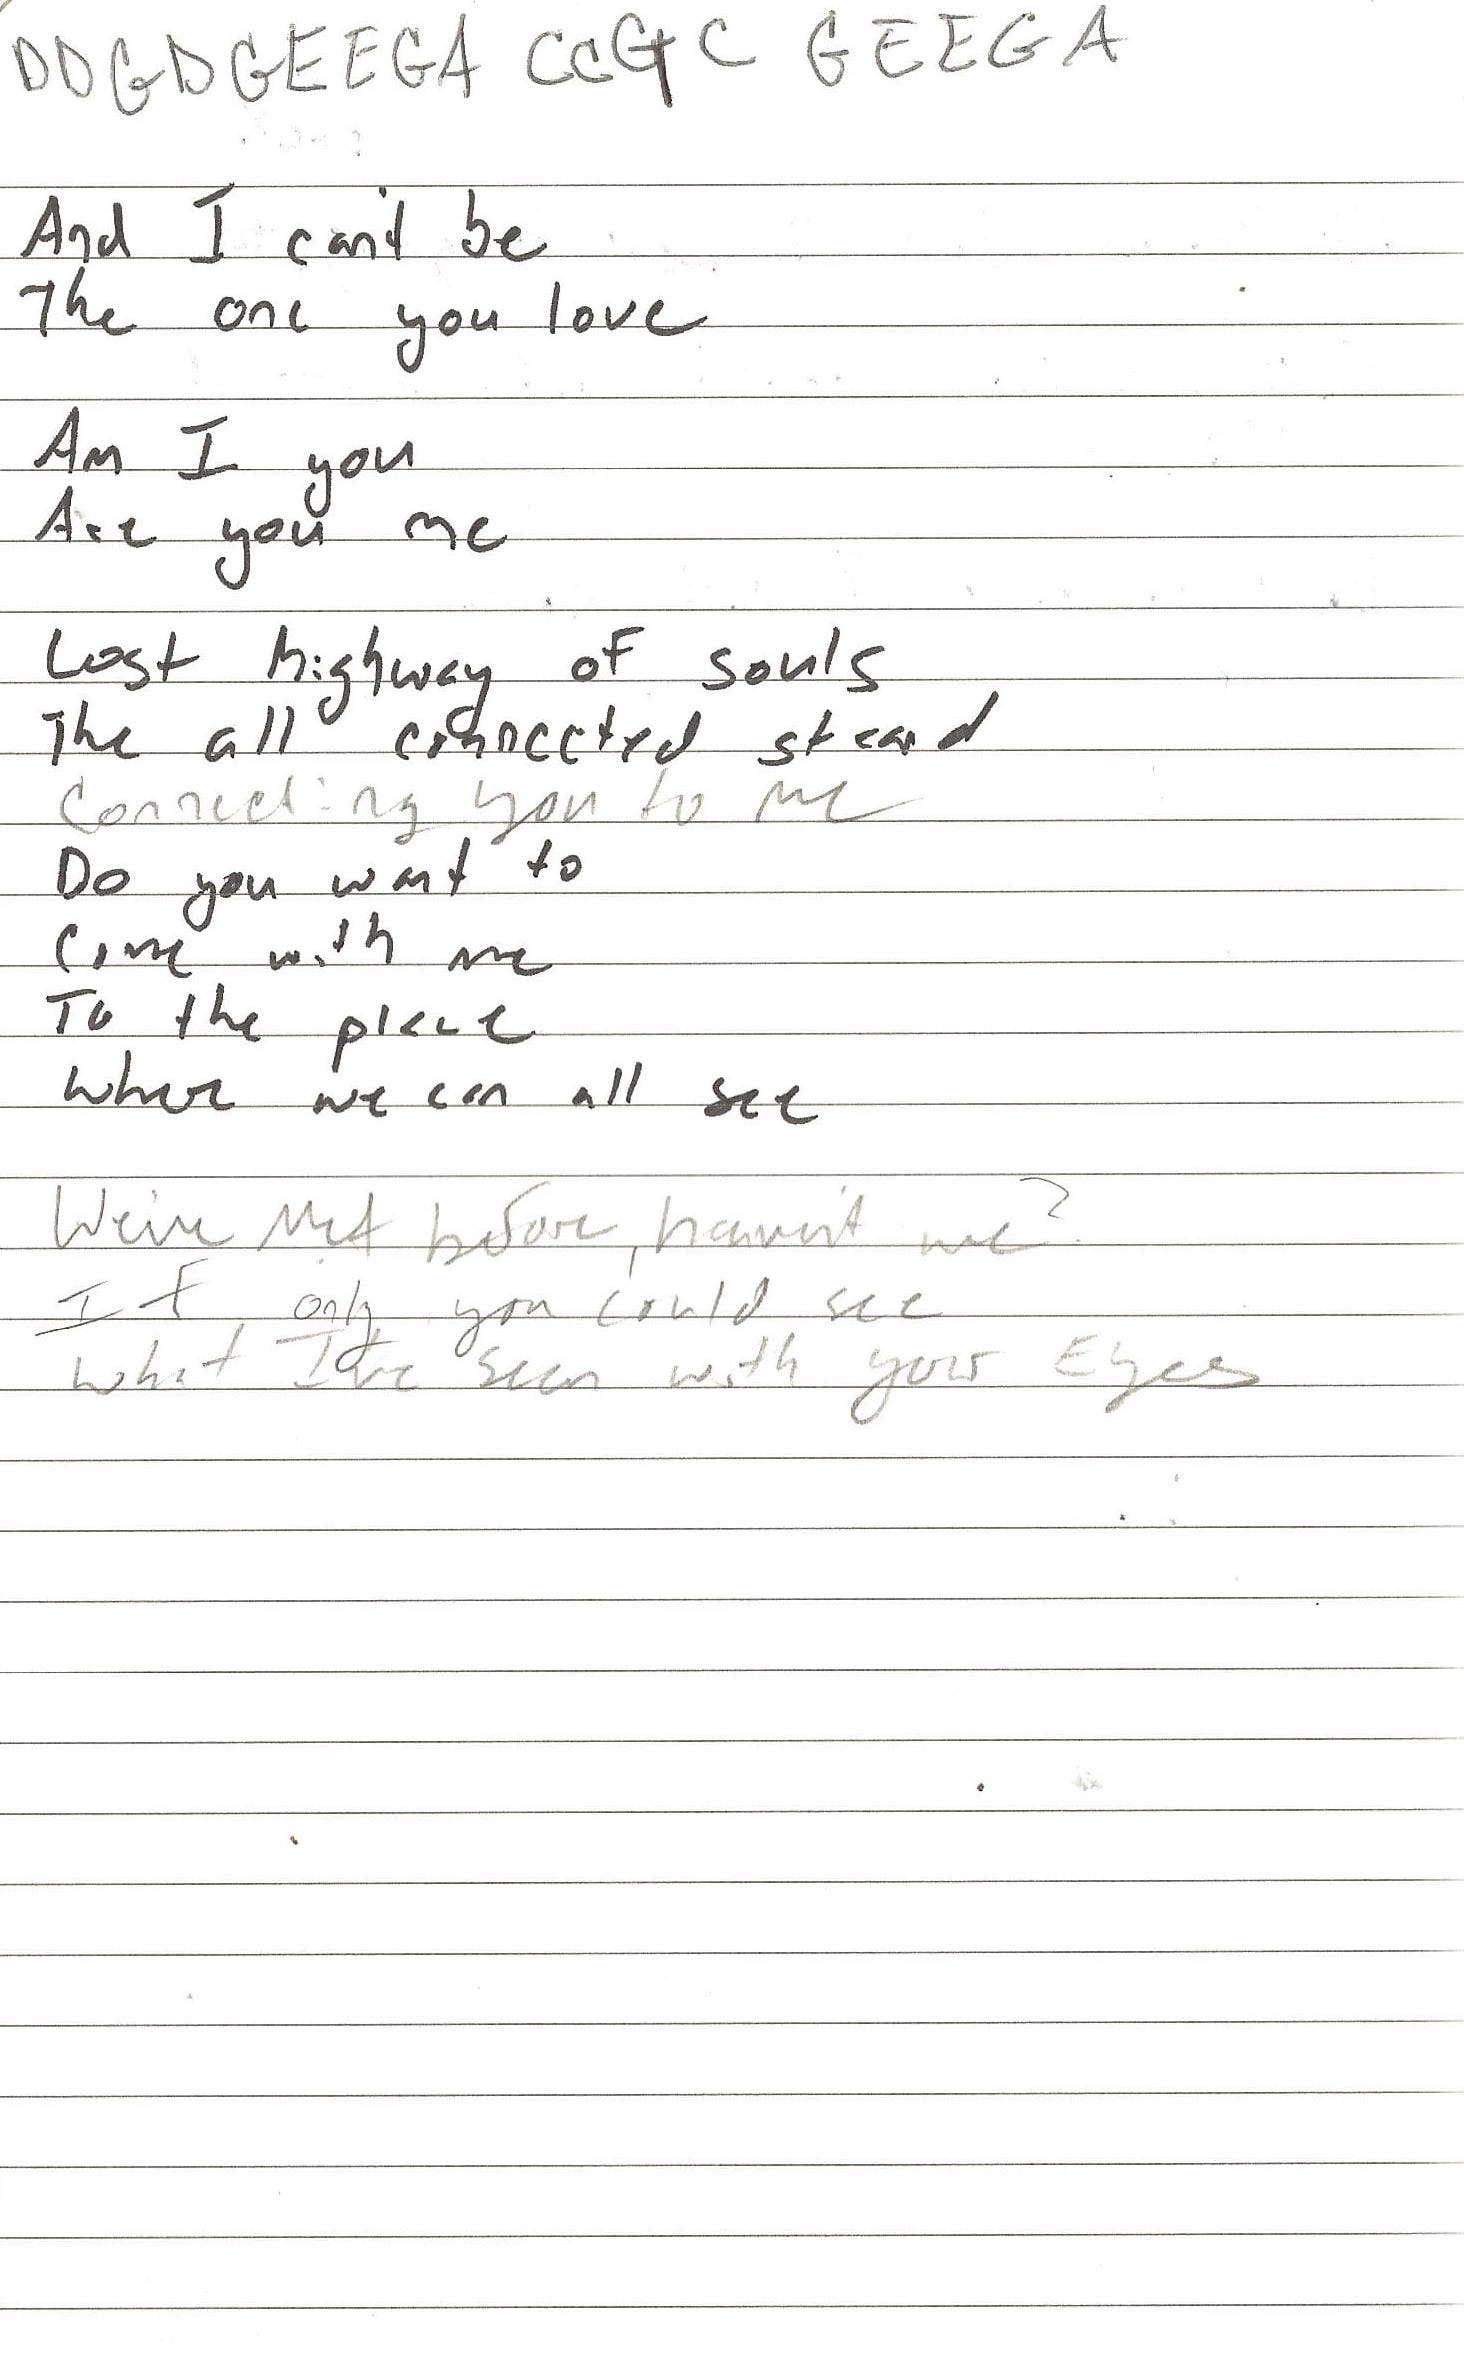 DDGDGEEGA CCGC GEEGA
And I can't be
The one you love
Am I you
Are you me
Lost highway of souls
The all connected
Connecting you to me
Do you want to
Come with me
To the place
Where we can all see
We've Met before, haven't we?
If only you could see
What I've seen with your Eyes